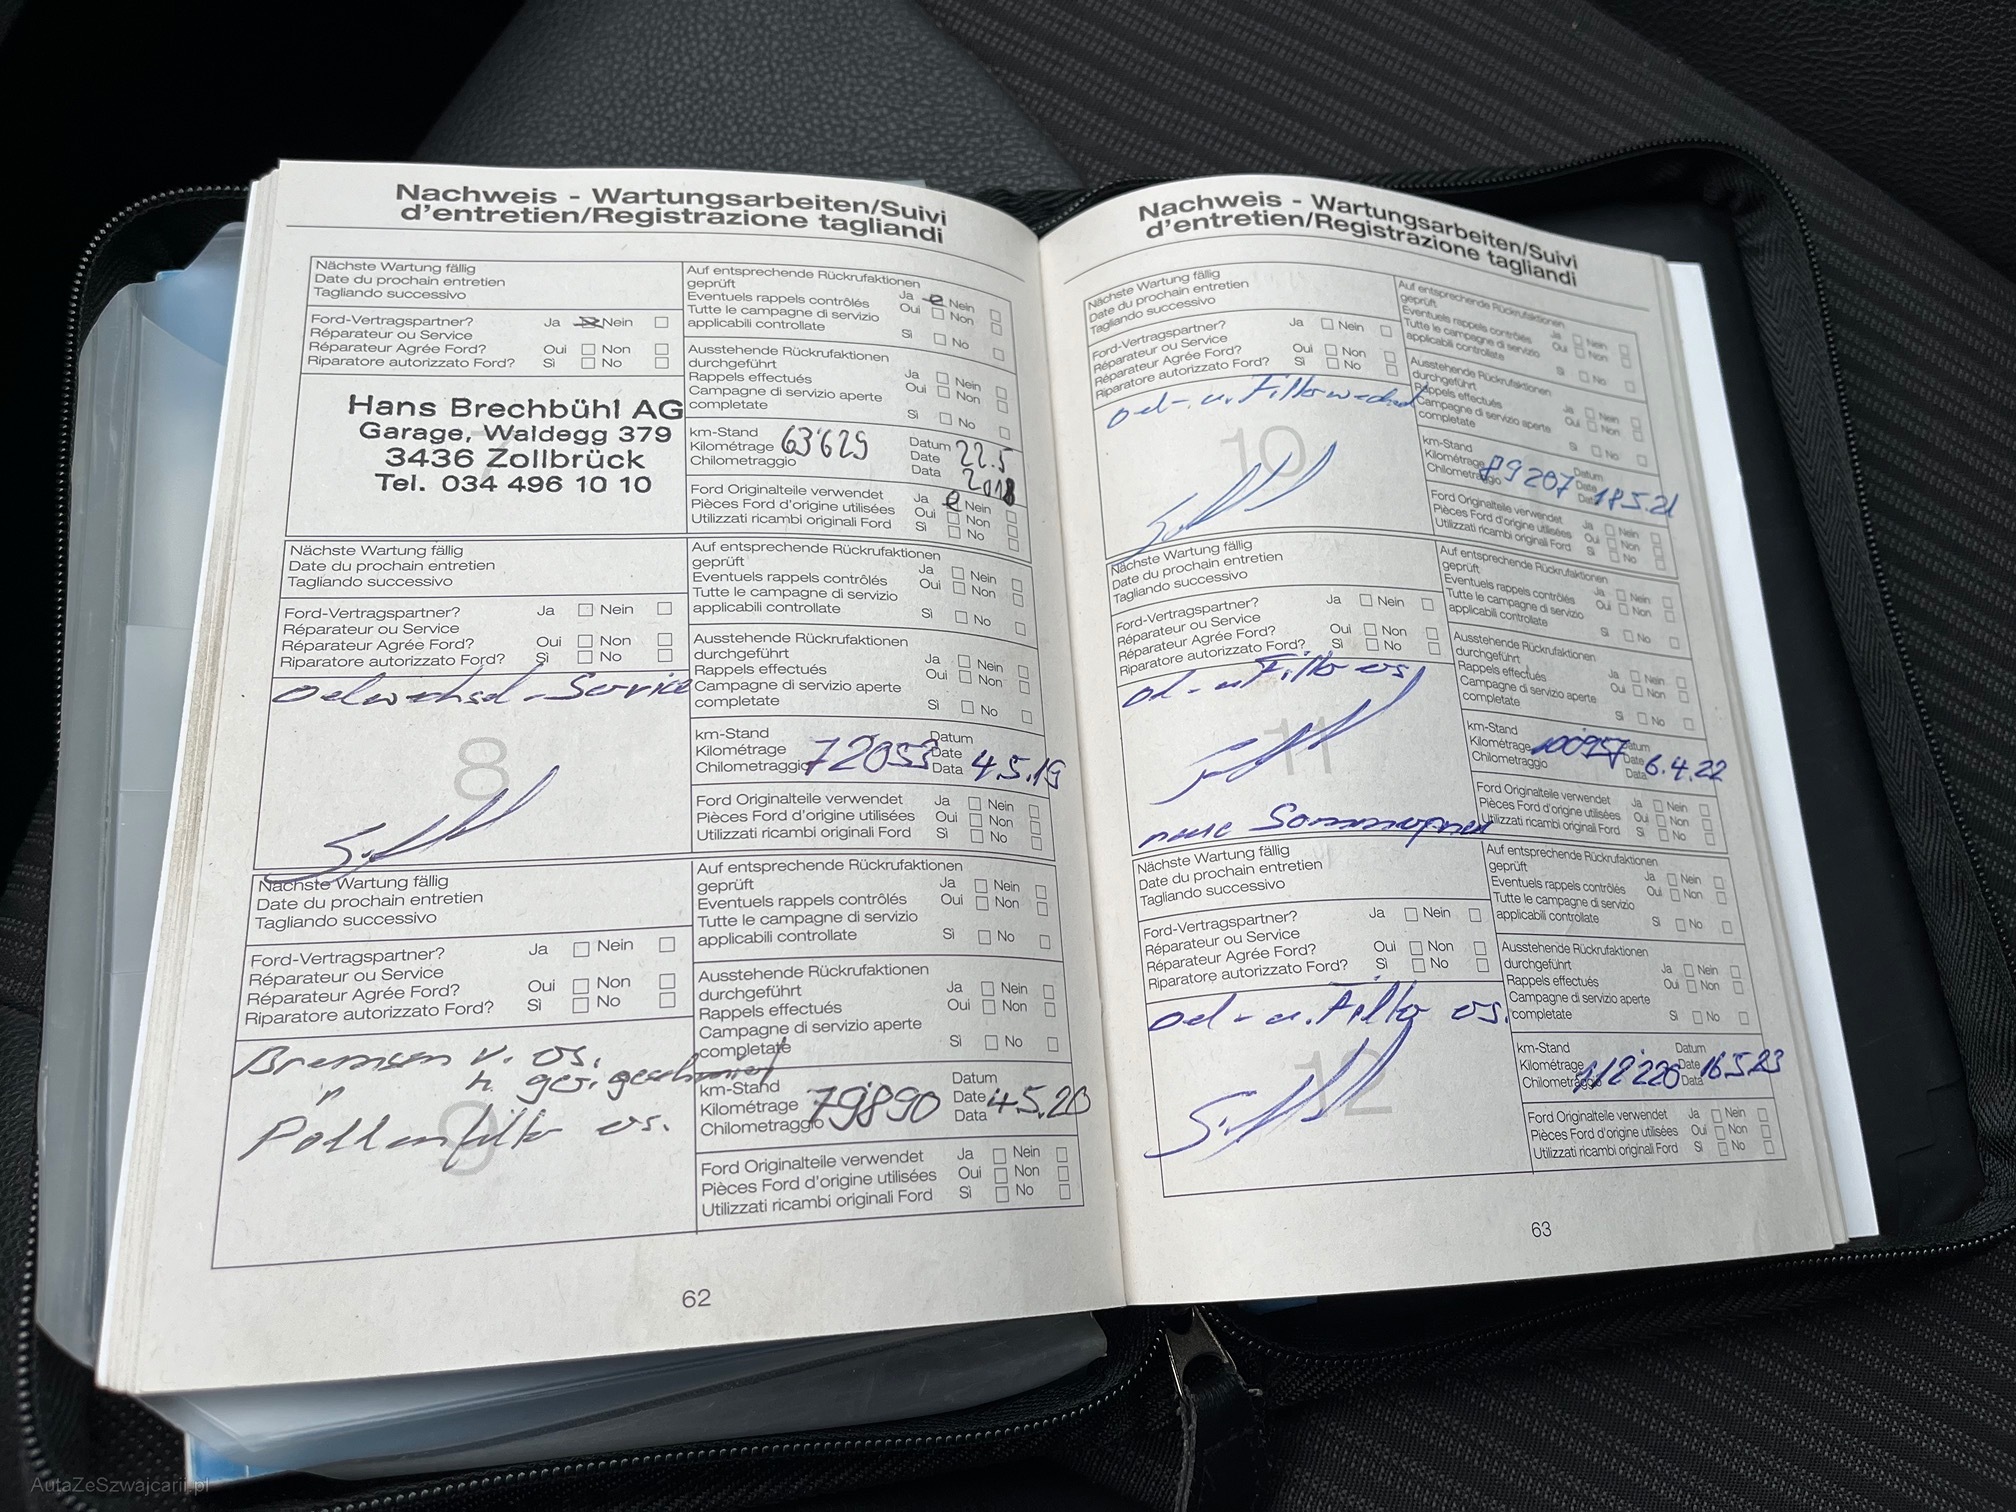 Nachweis - Wartungsarbeiten/Suivi
d'entretien/Registrazione tagliandi
Nächste Wartung fällig
Date du prochain entretien
Tagliando successivo
Ford-Vertragspartner? Ja Nein
Réparateur ou Service
Réparateur Agrée Ford? Oui Non
Riparatore autorizzato Ford? Sì No
Hans Brechbühl AG
Garage, Waldegg 379
3436 Zollbrück
Tel. 034 496 10 10
Auf entsprechende Rückrufaktionen
geprüft Ja Nein
Eventuels rappels contrôlés Oui Non
Tutte le campagne di servizio
applicabili controllate Sì No
Ausstehende Rückrufaktionen
durchgeführt Ja Nein
Rappels effectués Oui Non
Campagne di servizio aperte
completate Sì No
km-Stand Datum
Kilométrage 63'629 Date 22.5
Chilometraggio Data 2018
Ford Originalteile verwendet Ja Nein
Pièces Ford d'origine utilisées Oui Non
Utilizzati ricambi originali Ford Sì No
Nächste Wartung fällig
Date du prochain entretien
Tagliando successivo
Ford-Vertragspartner? Ja Nein
Réparateur ou Service
Réparateur Agrée Ford? Oui Non
Riparatore autorizzato Ford? Sì No
Oelwechsel-Service
8
Auf entsprechende Rückrufaktionen
geprüft Ja Nein
Eventuels rappels contrôlés Oui Non
Tutte le campagne di servizio
applicabili controllate Sì No
Ausstehende Rückrufaktionen
durchgeführt Ja Nein
Rappels effectués Oui Non
Campagne di servizio aperte
completate Sì No
km-Stand Datum
Kilométrage 72053 Date 4.5.19
Chilometraggio Data
Ford Originalteile verwendet Ja Nein
Pièces Ford d'origine utilisées Oui Non
Utilizzati ricambi originali Ford Sì No
Nächste Wartung fällig
Date du prochain entretien
Tagliando successivo
Ford-Vertragspartner? Ja Nein
Réparateur ou Service
Réparateur Agrée Ford? Oui Non
Riparatore autorizzato Ford? Sì No
Bremsen v. ers.
" h. ger. geschmiert
Pollenfilter ers.
9
Auf entsprechende Rückrufaktionen
geprüft Ja Nein
Eventuels rappels contrôlés Oui Non
Tutte le campagne di servizio
applicabili controllate Sì No
Ausstehende Rückrufaktionen
durchgeführt Ja Nein
Rappels effectués Oui Non
Campagne di servizio aperte
completate Sì No
km-Stand Datum
Kilométrage 79890 Date 4.5.20
Chilometraggio Data
Ford Originalteile verwendet Ja Nein
Pièces Ford d'origine utilisées Oui Non
Utilizzati ricambi originali Ford Sì No
62
Nachweis - Wartungsarbeiten/Suivi
d'entretien/Registrazione tagliandi
Nächste Wartung fällig
Date du prochain entretien
Tagliando successivo
Ford-Vertragspartner? Ja Nein
Réparateur ou Service
Réparateur Agrée Ford? Oui Non
Riparatore autorizzato Ford? Sì No
Oel-u. Filterwechsel
10
Auf entsprechende Rückrufaktionen
geprüft Ja Nein
Eventuels rappels contrôlés Oui Non
Tutte le campagne di servizio
applicabili controllate Sì No
Ausstehende Rückrufaktionen
durchgeführt Ja Nein
Rappels effectués Oui Non
Campagne di servizio aperte
completate Sì No
km-Stand Datum
Kilométrage 89207 Date 18.5.21
Chilometraggio Data
Ford Originalteile verwendet Ja Nein
Pièces Ford d'origine utilisées Oui Non
Utilizzati ricambi originali Ford Sì No
Nächste Wartung fällig
Date du prochain entretien
Tagliando successivo
Ford-Vertragspartner? Ja Nein
Réparateur ou Service
Réparateur Agrée Ford? Oui Non
Riparatore autorizzato Ford? Sì No
Oel-u Filter ers
11
neue Sommerpneu
Auf entsprechende Rückrufaktionen
geprüft Ja Nein
Eventuels rappels contrôlés Oui Non
Tutte le campagne di servizio
applicabili controllate Sì No
Ausstehende Rückrufaktionen
durchgeführt Ja Nein
Rappels effectués Oui Non
Campagne di servizio aperte
completate Sì No
km-Stand Datum
Kilométrage 100957 Date 6.4.22
Chilometraggio Data
Ford Originalteile verwendet Ja Nein
Pièces Ford d'origine utilisées Oui Non
Utilizzati ricambi originali Ford Sì No
Nächste Wartung fällig
Date du prochain entretien
Tagliando successivo
Ford-Vertragspartner? Ja Nein
Réparateur ou Service
Réparateur Agrée Ford? Oui Non
Riparatore autorizzato Ford? Sì No
Oel-u. Filter ers.
12
Auf entsprechende Rückrufaktionen
geprüft Ja Nein
Eventuels rappels contrôlés Oui Non
Tutte le campagne di servizio
applicabili controllate Sì No
Ausstehende Rückrufaktionen
durchgeführt Ja Nein
Rappels effectués Oui Non
Campagne di servizio aperte
completate Sì No
km-Stand Datum
Kilométrage 112'220 Date 16.5.23
Chilometraggio Data
Ford Originalteile verwendet Ja Nein
Pièces Ford d'origine utilisées Oui Non
Utilizzati ricambi originali Ford Sì No
63
AutaZeSzwajcarii.pl